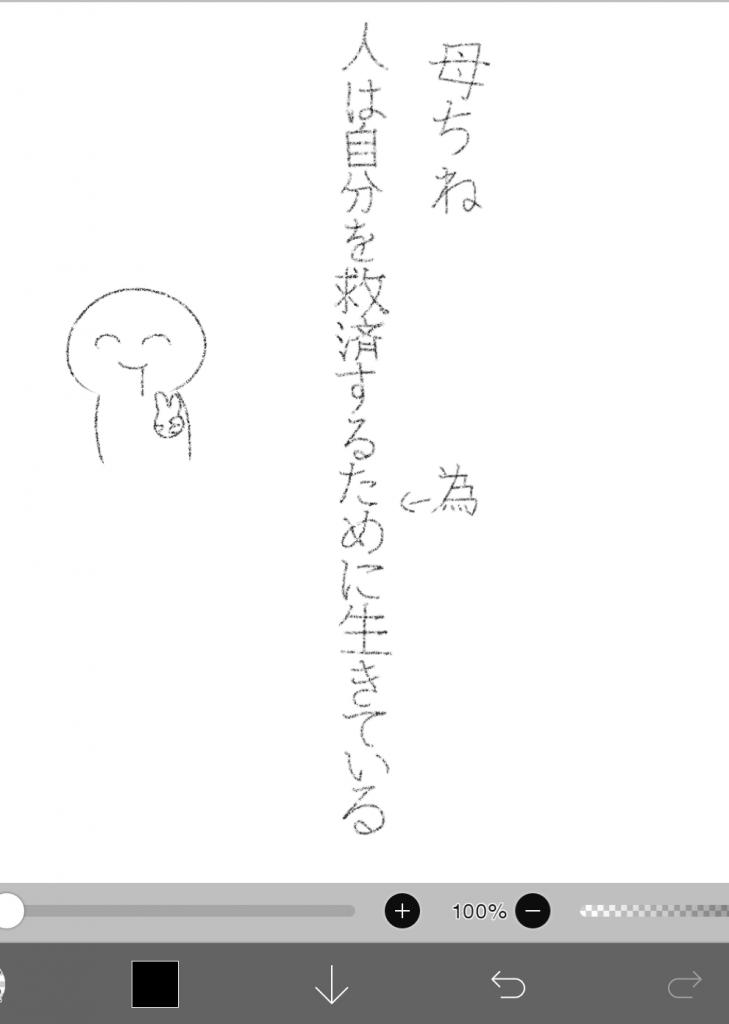 母ちね
人は自分を救済するために生きている
←為
100%